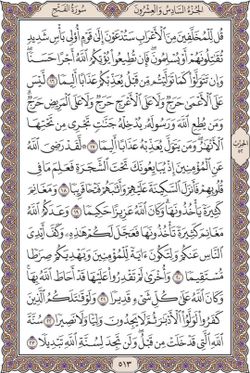 الجزء السادس والعشرون
سورة الفتح
قُل لِّلْمُخَلَّفِينَ مِنَ ٱلْأَعْرَابِ سَتُدْعَوْنَ إِلَىٰ قَوْمٍ أُو۟لِى بَأْسٍ شَدِيدٍ
تُقَٰتِلُونَهُمْ أَوْ يُسْلِمُونَ ۖ فَإِن تُطِيعُوا۟ يُؤْتِكُمُ ٱللَّهُ أَجْرًا حَسَنًا ۖ
وَإِن تَتَوَلَّوْا۟ كَمَا تَوَلَّيْتُم مِّن قَبْلُ يُعَذِّبْكُمْ عَذَابًا أَلِيمًا ١٦ لَّيْسَ
عَلَى ٱلْأَعْمَىٰ حَرَجٌ وَلَا عَلَى ٱلْأَعْرَجِ حَرَجٌ وَلَا عَلَى ٱلْمَرِيضِ حَرَجٌ ۗ
وَمَن يُطِعِ ٱللَّهَ وَرَسُولَهُۥ يُدْخِلْهُ جَنَّٰتٍ تَجْرِى مِن تَحْتِهَا
ٱلْأَنْهَٰرُ ۖ وَمَن يَتَوَلَّ يُعَذِّبْهُ عَذَابًا أَلِيمًا ١٧ لَّقَدْ رَضِىَ ٱللَّهُ
عَنِ ٱلْمُؤْمِنِينَ إِذْ يُبَايِعُونَكَ تَحْتَ ٱلشَّجَرَةِ فَعَلِمَ مَا فِى
قُلُوبِهِمْ فَأَنزَلَ ٱلسَّكِينَةَ عَلَيْهِمْ وَأَثَٰبَهُمْ فَتْحًا قَرِيبًا ١٨ وَمَغَانِمَ
كَثِيرَةً يَأْخُذُونَهَا ۗ وَكَانَ ٱللَّهُ عَزِيزًا حَكِيمًا ١٩ وَعَدَكُمُ ٱللَّهُ
مَغَانِمَ كَثِيرَةً تَأْخُذُونَهَا فَعَجَّلَ لَكُمْ هَٰذِهِۦ وَكَفَّ أَيْدِىَ
ٱلنَّاسِ عَنكُمْ وَلِتَكُونَ ءَايَةً لِّلْمُؤْمِنِينَ وَيَهْدِيَكُمْ صِرَٰطًا
مُّسْتَقِيمًا ٢٠ وَأُخْرَىٰ لَمْ تَقْدِرُوا۟ عَلَيْهَا قَدْ أَحَاطَ ٱللَّهُ بِهَا ۚ
وَكَانَ ٱللَّهُ عَلَىٰ كُلِّ شَىْءٍ قَدِيرًا ٢١ وَلَوْ قَٰتَلَكُمُ ٱلَّذِينَ
كَفَرُوا۟ لَوَلَّوُا۟ ٱلْأَدْبَٰرَ ثُمَّ لَا يَجِدُونَ وَلِيًّا وَلَا نَصِيرًا ٢٢ سُنَّةَ
ٱللَّهِ ٱلَّتِى قَدْ خَلَتْ مِن قَبْلُ ۖ وَلَن تَجِدَ لِسُنَّةِ ٱللَّهِ تَبْدِيلًا ٢٣
٥١٣